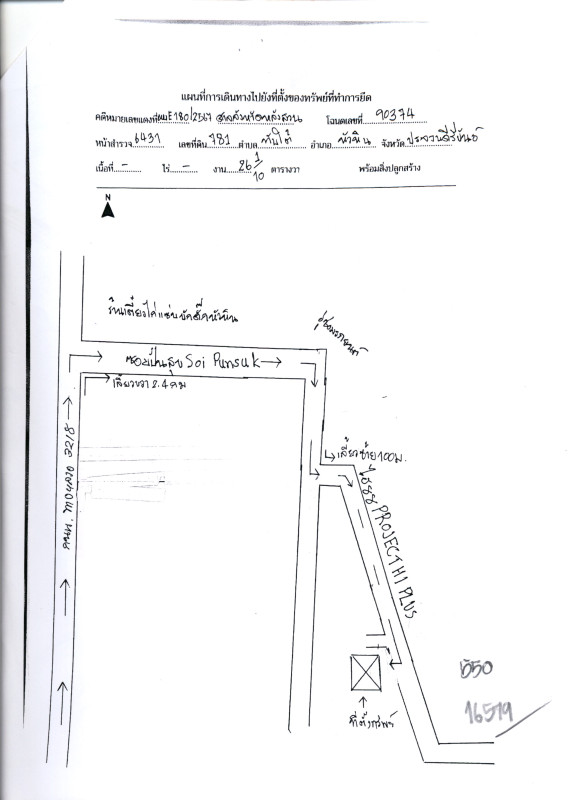 แผนที่การเดินทางไปยังที่ตั้งของทรัพย์ที่ทำการยึด
คดีหมายเลขแดงที่ ผบE180/2567 ศาลจังหวัดหลังสวน โฉนดเลขที่ 90374
หน้าสำรวจ 6431 เลขที่ดิน 781 ตำบล ทับใต้ อำเภอ หัวหิน จังหวัด ประจวบคีรีขันธ์
เนื้อที่ - ไร่ - งาน 26 1/10 ตารางวา พร้อมสิ่งปลูกสร้าง
N
ซอยปันสุข Soi Punsuk
เลี้ยวขวา 2.4 กม
เลี้ยวซ้าย 100ม.
ถนน ทางหลวง 3218
PROJECT H1 PLUS
ที่ตั้งทรัพย์
550
16519